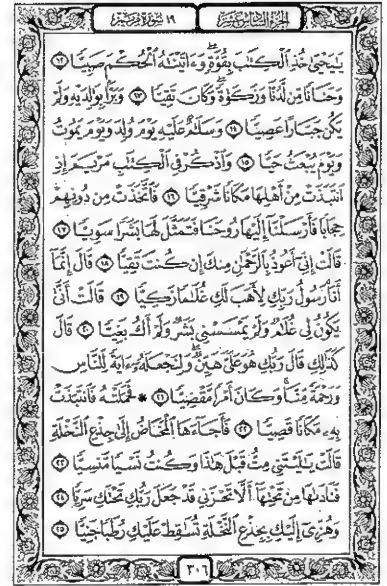 الجزء السادس عشر ١٩ سورة مريم
يَٰيَحْيَىٰ خُذِ ٱلْكِتَٰبَ بِقُوَّةٍ وَءَاتَيْنَٰهُ ٱلْحُكْمَ صَبِيًّا ١٢
وَحَنَانًا مِّن لَّدُنَّا وَزَكَوٰةً وَكَانَ تَقِيًّا ١٣ وَبَرًّۢا بِوَٰلِدَيْهِ وَلَمْ
يَكُن جَبَّارًا عَصِيًّا ١٤ وَسَلَٰمٌ عَلَيْهِ يَوْمَ وُلِدَ وَيَوْمَ يَمُوتُ
وَيَوْمَ يُبْعَثُ حَيًّا ١٥ وَٱذْكُرْ فِى ٱلْكِتَٰبِ مَرْيَمَ إِذِ
ٱنتَبَذَتْ مِنْ أَهْلِهَا مَكَانًا شَرْقِيًّا ١٦ فَٱتَّخَذَتْ مِن دُونِهِمْ
حِجَابًا فَأَرْسَلْنَآ إِلَيْهَا رُوحَنَا فَتَمَثَّلَ لَهَا بَشَرًا سَوِيًّا ١٧
قَالَتْ إِنِّىٓ أَعُوذُ بِٱلرَّحْمَٰنِ مِنكَ إِن كُنتَ تَقِيًّا ١٨ قَالَ إِنَّمَآ
أَنَا۠ رَسُولُ رَبِّكِ لِأَهَبَ لَكِ غُلَٰمًا زَكِيًّا ١٩ قَالَتْ أَنَّىٰ
يَكُونُ لِى غُلَٰمٌ وَلَمْ يَمْسَسْنِى بَشَرٌ وَلَمْ أَكُ بَغِيًّا ٢٠ قَالَ
كَذَٰلِكِ قَالَ رَبُّكِ هُوَ عَلَىَّ هَيِّنٌ وَلِنَجْعَلَهُۥٓ ءَايَةً لِّلنَّاسِ
وَرَحْمَةً مِّنَّا وَكَانَ أَمْرًا مَّقْضِيًّا ٢١ * فَحَمَلَتْهُ فَٱنتَبَذَتْ
بِهِۦ مَكَانًا قَصِيًّا ٢٢ فَأَجَآءَهَا ٱلْمَخَاضُ إِلَىٰ جِذْعِ ٱلنَّخْلَةِ
قَالَتْ يَٰلَيْتَنِى مِتُّ قَبْلَ هَٰذَا وَكُنتُ نَسْيًا مَّنسِيًّا ٢٣
فَنَادَىٰهَا مِن تَحْتِهَآ أَلَّا تَحْزَنِى قَدْ جَعَلَ رَبُّكِ تَحْتَكِ سَرِيًّا ٢٤
وَهُزِّىٓ إِلَيْكِ بِجِذْعِ ٱلنَّخْلَةِ تُسَٰقِطْ عَلَيْكِ رُطَبًا جَنِيًّا ٢٥
٣٠٦